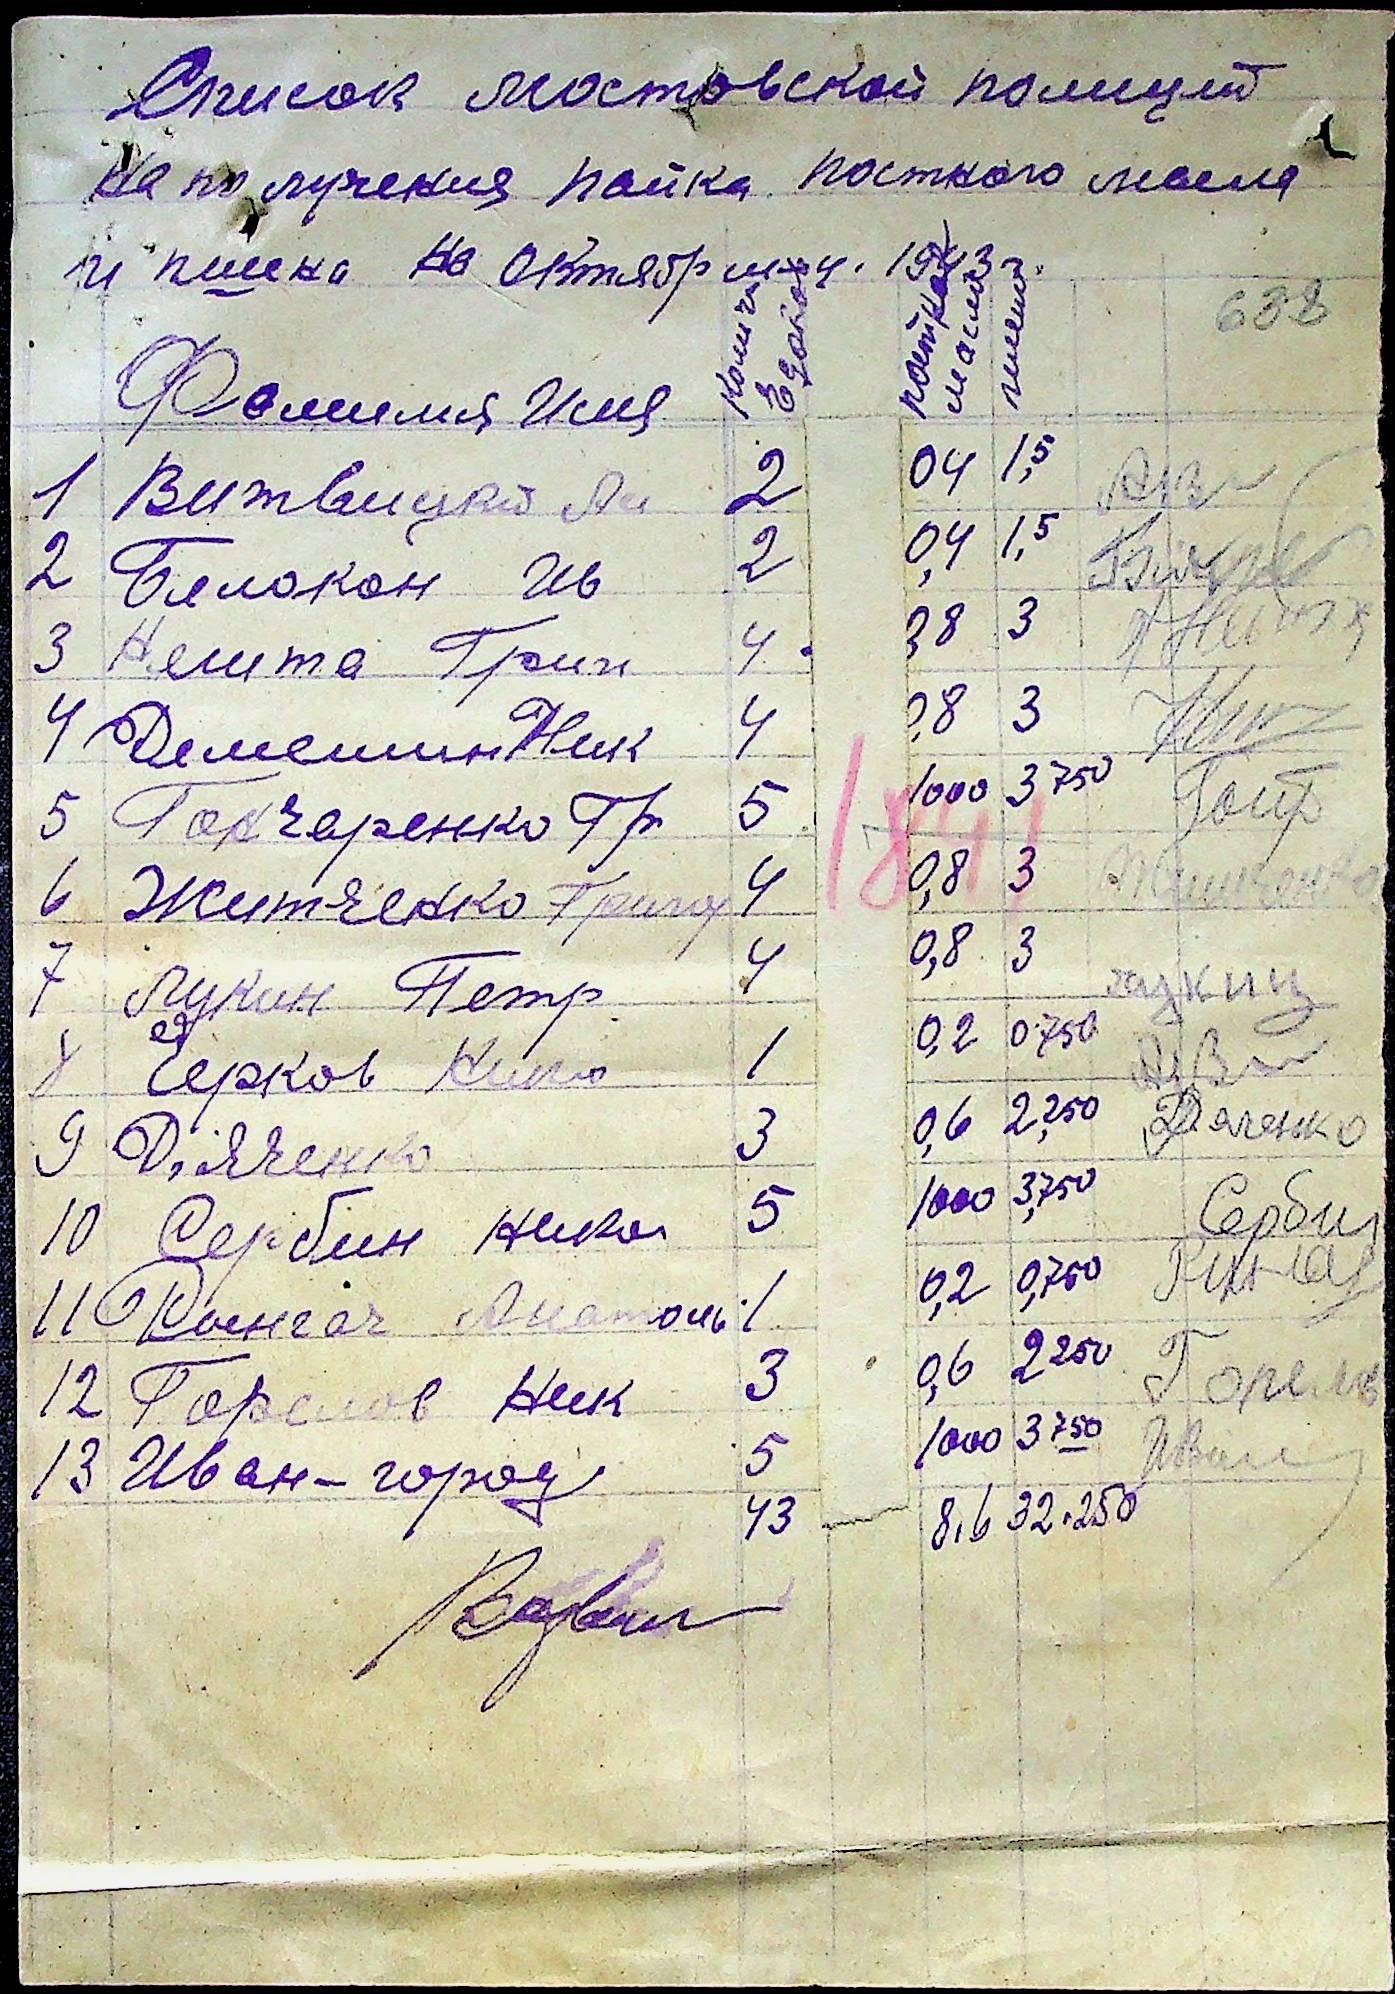 Список Мостовской полиции
на получения пайка постного масла
и пшена на Октябр м-ч. 1943 г.
638
Фамилия Имя Колич Едоков постное масло пшено
1 Витвицкий Ан 2 04 1,5
2 Белокон Ив 2 0,4 1,5
3 Григ 4 0,8 3
4 Демешин Ник 4 0,8 3
5 Гончаренко Гр 5 1000 3750
6 Житченко Григор 4 0,8 3
7 Лукин Петр 4 0,8 3
8 Черков 1 0,2 0750
9 Дяченко 3 0,6 2,250 Дяченко
10 Сербин Никол 5 1000 3,750 Сербин
11 Анатоль 1 0,2 0,750
12 Горелов Ник 3 0,6 2250 Горелов
13 Иван-город 5 1000 3750 Иван
43 8.6 32.250